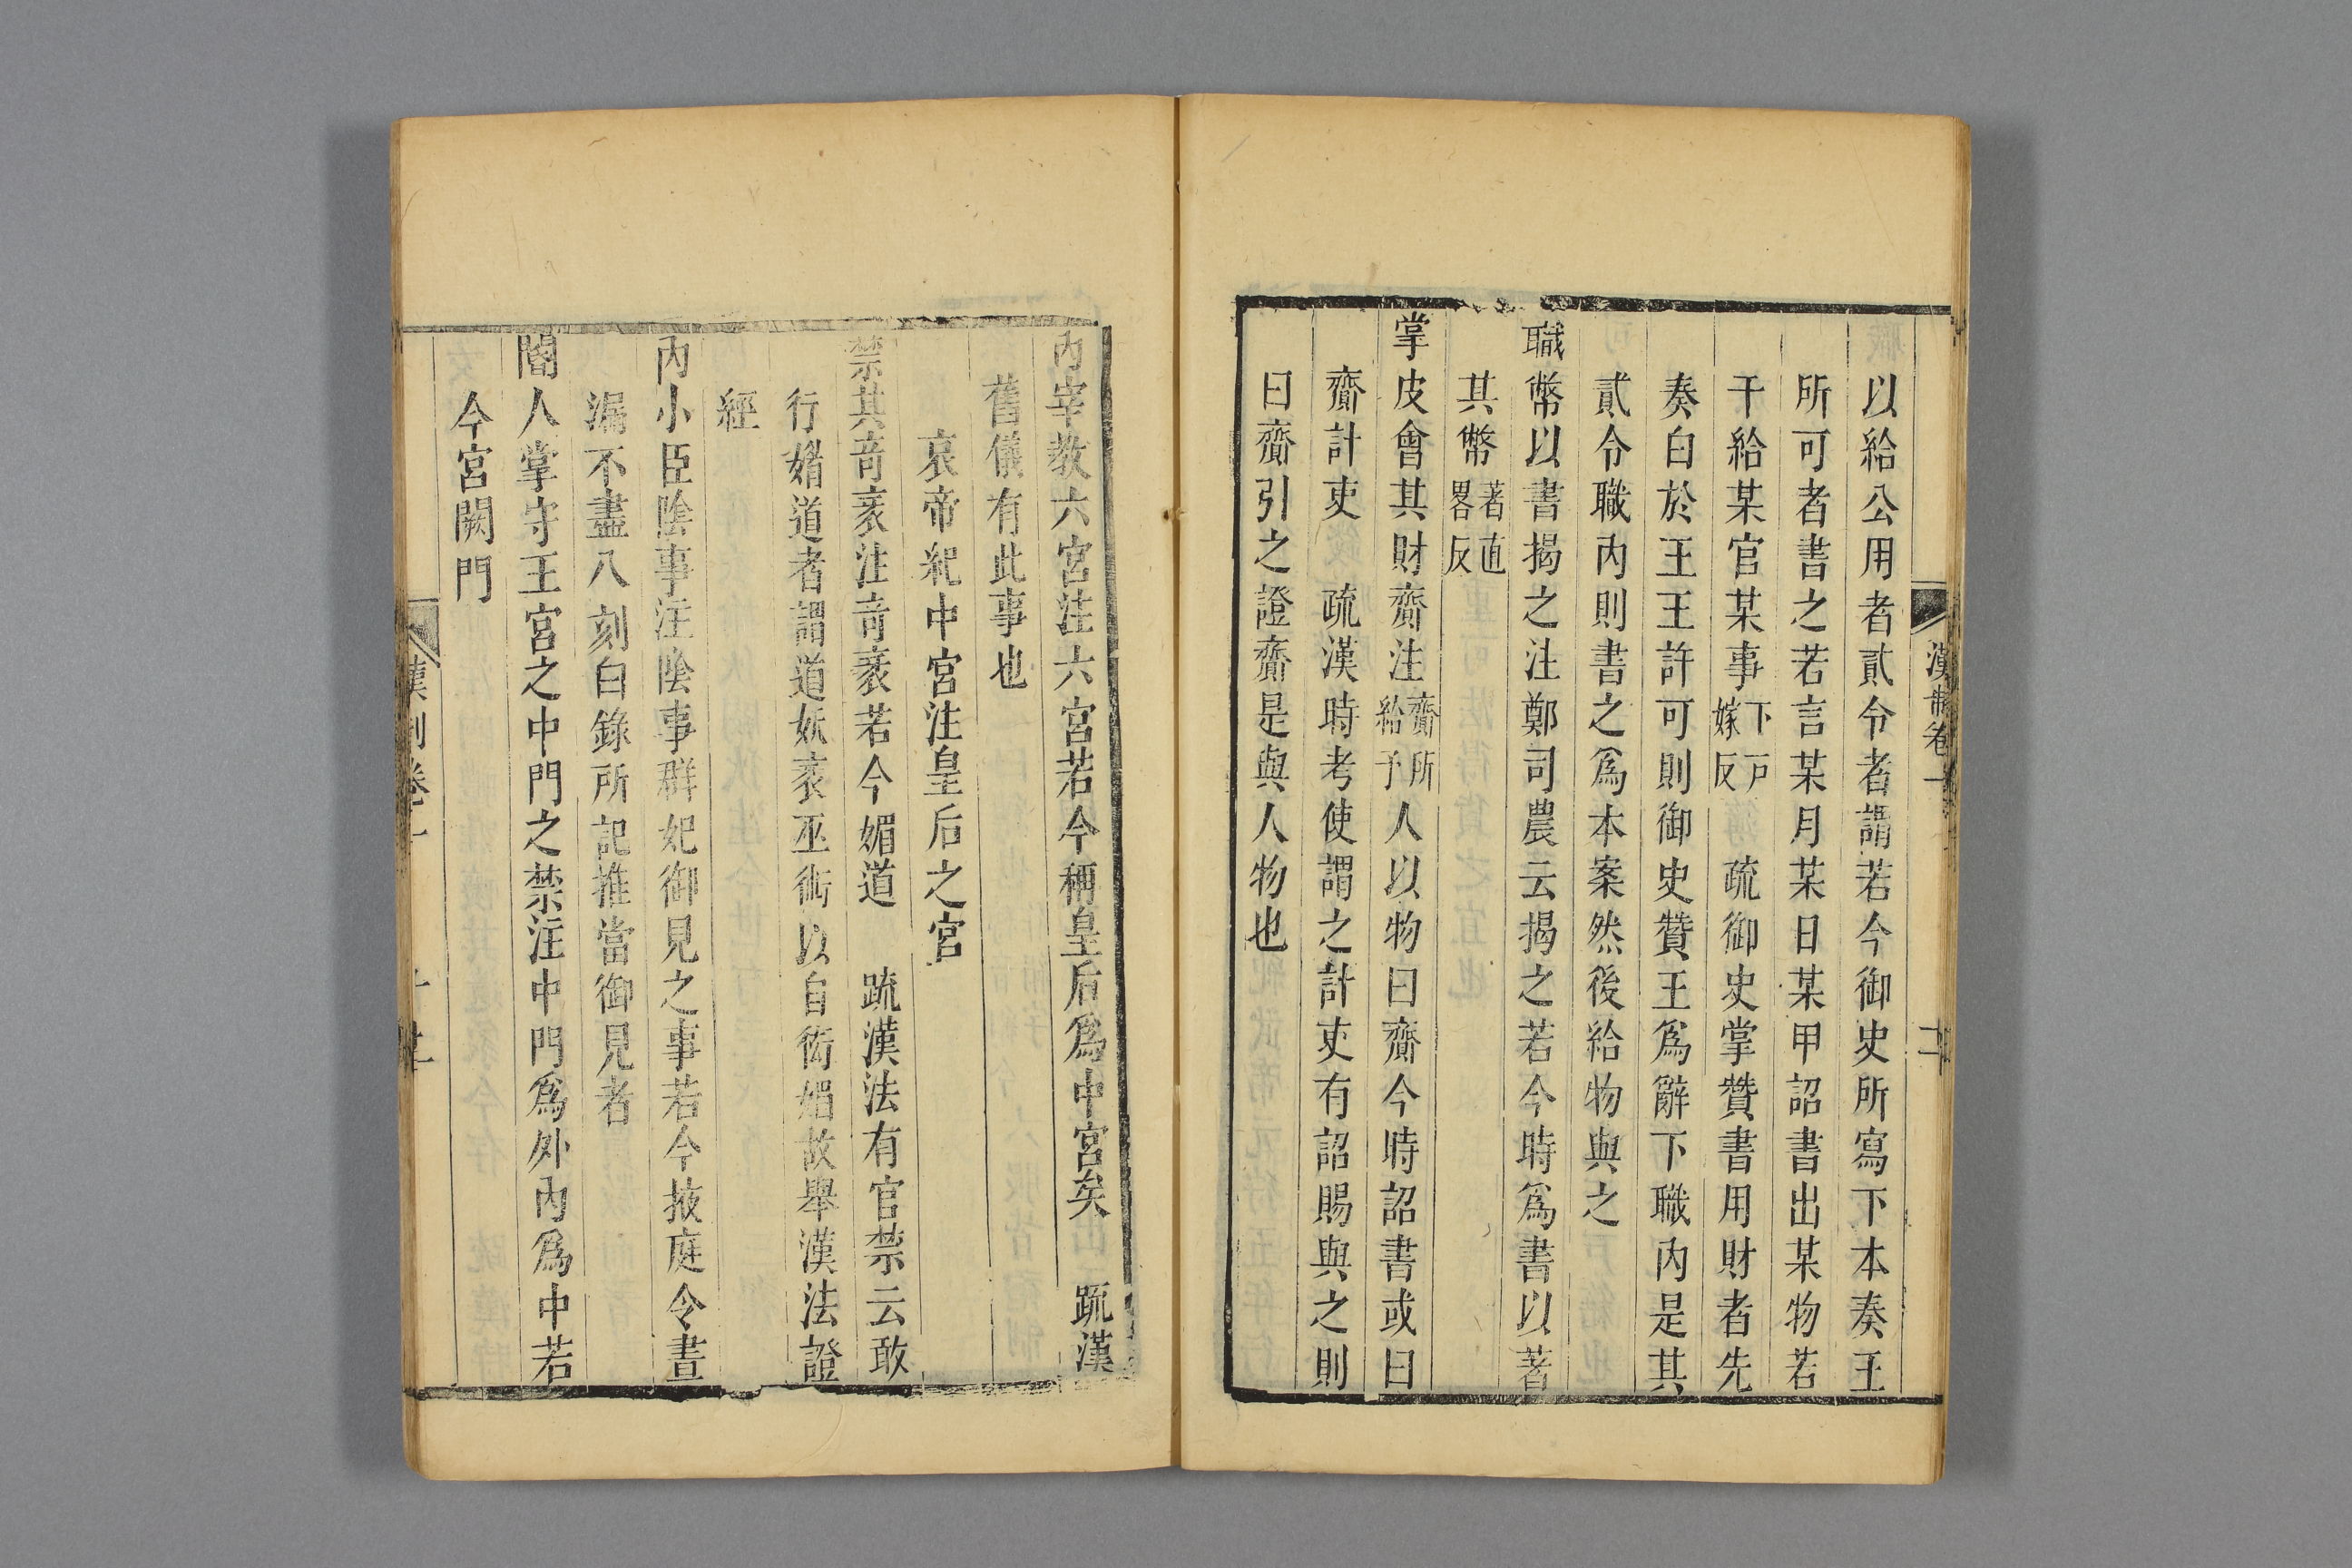 漢制卷一
十二
以給公用者貳令者謂若今御史所寫下本奏王
所可者書之若言某月某日某甲詔書出某物若
干給某官某事下戶嫁反疏御史掌贊書用財者先
奏白於王王許可則御史贊王爲辭下職內是其
貳令職內則書之爲本案然後給物與之
職幣以書揭之注鄭司農云揭之若今時爲書以著
其幣著直畧反
掌皮會其財齎注齎所給予人以物曰齎今時詔書或曰
齎計吏 疏漢時考使謂之計吏有詔賜與之則
曰齎引之證齎是與人物也
內宰教六宮注六宮若今稱皇后爲中宮矣 疏漢
舊儀有此事也
哀帝紀中宮注皇后之宮
禁其奇衺注奇衺若今媚道 疏漢法有官禁云敢
行媚道者謂道妖衺巫術以自衒媚故舉漢法證
經
內小臣陰事注陰事群妃御見之事若今掖庭令晝
漏不盡八刻白錄所記推當御見者
閽人掌守王宮之中門之禁注中門爲外內爲中若
今宮闕門
漢制卷一